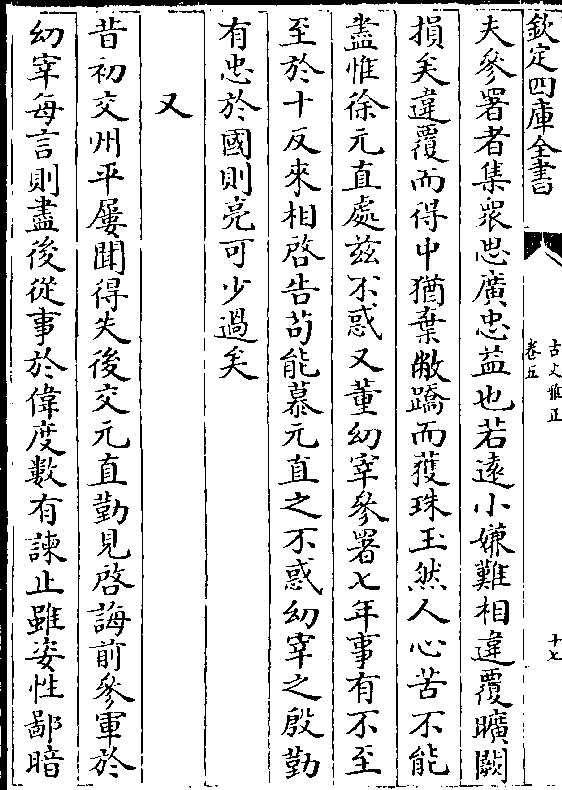 欽定四庫全書
古文雅正
卷五
十七
夫參署者集衆思廣忠益也若逺小嫌難相違覆曠闕
損矣違覆而得中猶棄敝蹻而獲珠玉然人心苦不能
盡惟徐元直處兹不惑又董幼宰參署七年事有不至
至於十反來相啓告茍能慕元直之不惑幼宰之殷勤
有忠於國則亮可少過矣
又
昔初交州平屢聞得失後交元直勤見啓誨前參軍於
幼宰每言則盡後從事於偉度數有諫止雖姿性鄙暗